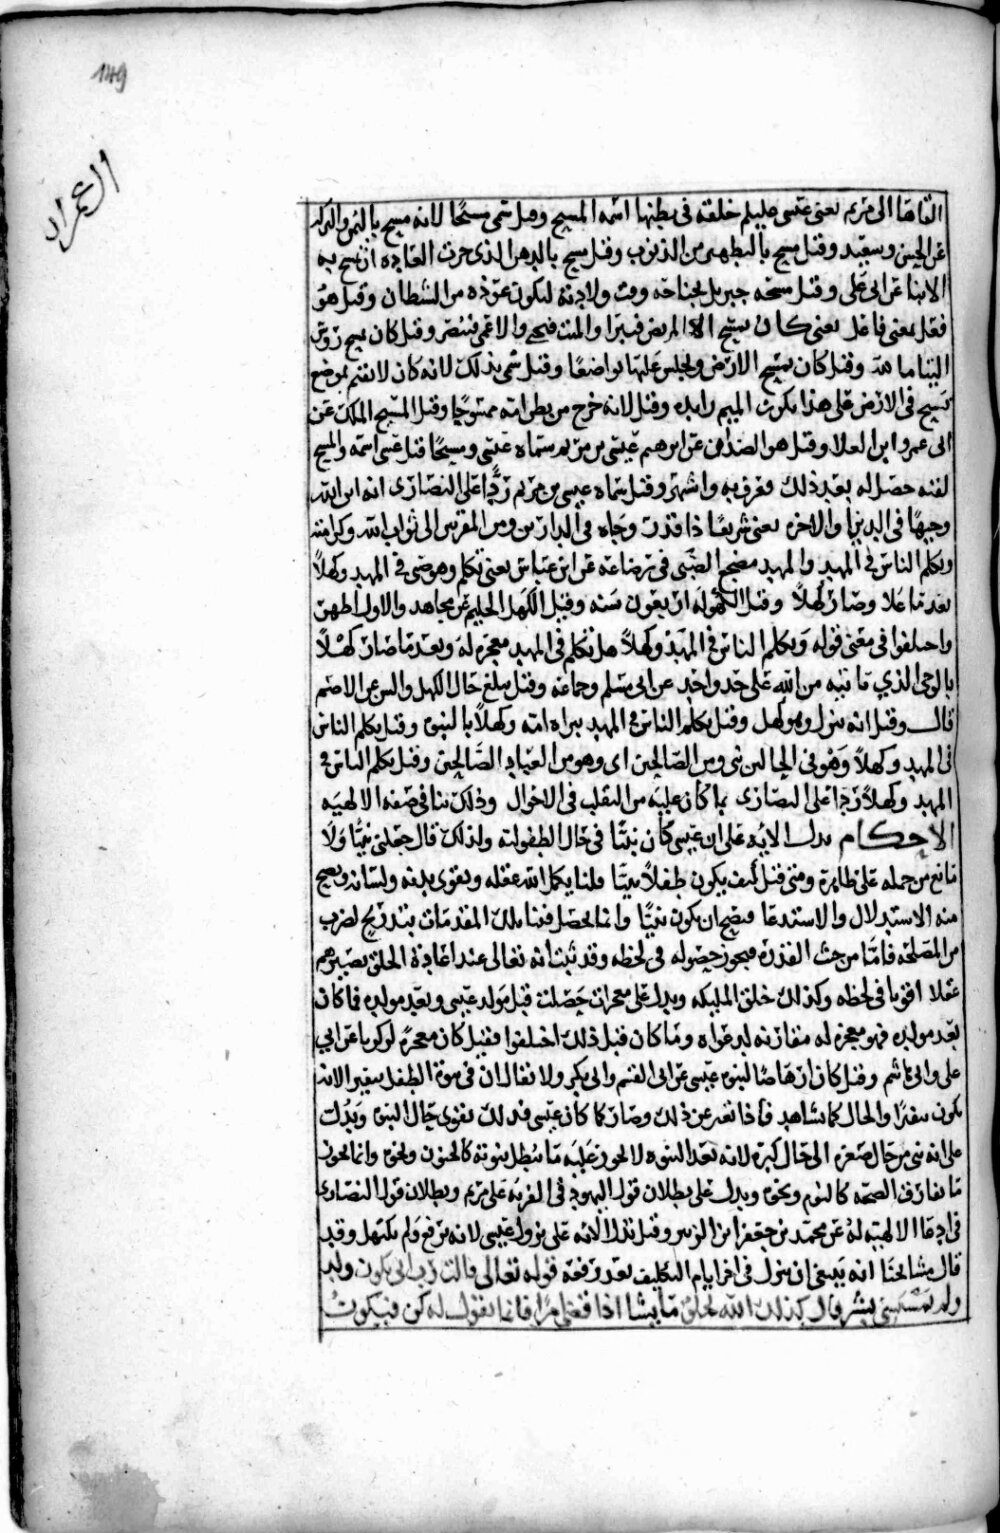 149
ال عمران
القاها الى مريم يعنى عيسى عليلم خلقه فى بطنها اسمه المسيح وقيل سمى مسيحًا لانه مسح باليمن والبركه
عن الحسن وسعيد وقيل مسح بالتطهير من الذنوب وقيل مسح بالدهن الذى جرت العاده ان يمسح به
الانبيا عن ابى على وقيل مسحه جبريل بجناحه وقت ولادته ليكون عوذه من الشيطان وقيل هو
فعيل بمعنى فاعل يعنى كان يمسح المريض فيبرا والميت فيحيى والاعمى فيبصر وقيل كان يمسح
وقيل كان يمسح الارض ويجلس عليها تواضعًا وقيل سمى بذلك لانه كان لا يقيم بموضع
يسيح فى الارض على هذا يكون الميم زايده وقيل لانه خرج من بطن امه ممسوحًا وقيل المسيح الملك عن
ابى عمرو ابن العلا وقيل هو الصديق عن ابرهيم عيسى بن مريم سماه عيسى ومسيحًا قيل عيسى اسمه والمسيح
لقبه حصل له بعد ذلك فعرف به واشتهر وقيل سماه عيسى بن مريم ردًّا على النصارى انه ابن الله
وجيهًا فى الدنيا والاخره يعنى شريفًا ذا قدر وجاه فى الدارين ومن المقربين الى ثواب الله وكرامته
ويكلم الناس فى المهد والمهد مضجع الصبى فى رضاعه عن ابن عباس يعنى تكلم وهو صبى فى المهد وكهلاً
بعد ما علا وصار كهلاً وقيل الكهوله اربعون سنه وقيل الكهل الحليم عن مجاهد والاول اظهر
واختلفوا فى معنى قوله ويكلم الناس فى المهد وكهلاً هل تكلم فى المهد معجزه له وبعد ما صار كهلاً
بالوحى الذي ياتيه من الله على حد واحد عن ابى مسلم وجماعه وقيل مبلغ حال الكهل والسن عن الاصم
قال وقيل انه ينزل وهو كهل وقيل يكلم الناس فى المهد ببراه امه وكهلاً بالنبوه وقيل يكلم الناس
فى المهد وكهلاً وهو فى الحالين نبى ومن الصالحين اى وهو من العباد الصالحين وقيل يكلم الناس فى
المهد وكهلاً ردًا على النصارى بما كان عليه من التقلب فى الاحوال وذلك ينافى صفه الالهيه
الاحكام يدل الايه على ان عيسى كان نبيًا فى حال الطفوليه ولذلك قال جعلنى نبيًّا ولا
مانع من حمله على ظاهره ومتى قيل كيف يكون طفلاً نبيًا قلنا يكمل الله عقله ويقوى بدنه ولسانه ويصح
منه الاستدلال والاستدعا فيصح ان يكون نبيًا وانما يحصل فينا تلك المقدمات بتدريج لضرب
من المصلحه فاما من حيث القدره فيجوز حصوله فى لحظه وقد ثبت انه تعالى عند اعاده الخلق يصيرهم
عقلا اقويا فى لحظه وكذلك خلق المليكه ويدل على معجزات حصلت قبل مولد عيسى وبعد مولده فما كان
بعد مولده فهو معجزه له مقارنه لدعواه وما كان قبل ذلك اختلفوا فقيل كان معجزه لزكريا عن ابي
على وابى هاشم وقيل كان ارهاصًا لنبوه عيسى عن ابى القسم وابى بكر ولا يقال ان فى
والحال كما نشاهد وصار كما كان عيسى حال النبوه ويدل
على انه نبى من حال صغره الى حال كبره لانه بعد النبوه لا يجوز عليه ما يبطل نبوته كالجنون ونحوه وانما يجوز
ما يفارق الصحه كالنوم ونحوه ويدل على بطلان قول اليهود فى الفريه على مريم وبطلان قول النصارى
فى ادعا الالهيه له عن محمد بن جعفر ابن الزبير وقيل تدل الايه على نزول عيسى لانه رفع ولم يكتهل وقد
قال مشائخنا انه ينبغى ان ينزل فى اخر ايام التكليف بعد رفعه قوله تعالى قالت رب انى يكون ولد
ولم يمسسنى بشر قال كذلك الله يخلق ما يشا اذا قضى امرًا فانما يقول له كن فيكون